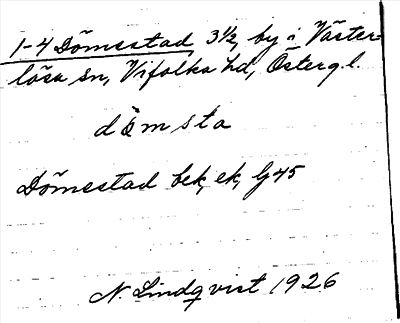 1-4 Dömestad, 3½, by i Väster-
lösa sn, Vifolka hd, Österg. l.
dömsta
Dömestad bek, ek, G45
N. Lindqvist 1926